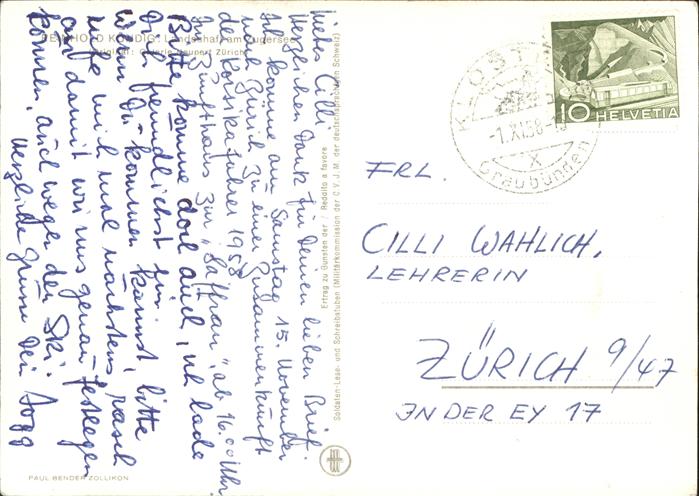 Liebes Cilli
Herzlichen Dank für Deinen lieben Brief.
Ich komme am Samstag 15. November
nach Zürich zu einer Zusammenkunft
der Korsikafahrer 1958
im Zunfthaus zur "Saffran", ab 16.00 Uhr.
Bitte komme doch auch, ich lade
Dich freundlichst ein.
Wenn Du kommen kannst, bitte
rufe mich mal nächstens rasch
an, damit wir uns genau festlegen
können, auch wegen den Ski.
Herzliche Grüsse Dein
REINHOLD KÜNDIG: Landschaft am Zugersee
Original: Galerie Neupert Zürich
Ertrag zu Gunsten der / Redolto a favore
Soldaten-Lese- und Schreibstuben (Militärkommission der C.V.J.M. der deutschsprachigen Schweiz)
PAUL BENDER ZOLLIKON
KLOSTERS
-1.XI.58-
X
Graubünden
10 HELVETIA
FRL.
CILLI WAHLICH,
LEHRERIN
ZÜRICH 9/47
IN DER EY 17